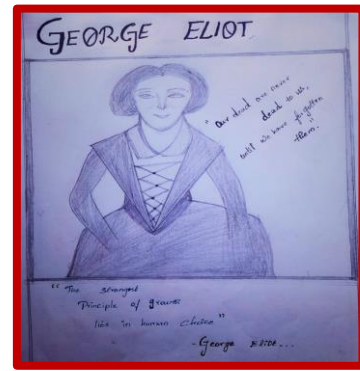 GEORGE ELIOT
"Our dead are never
dead to us,
until we have forgotten
them."
"The strongest
Principle of growth
lies in human choice"
- George Eliot...